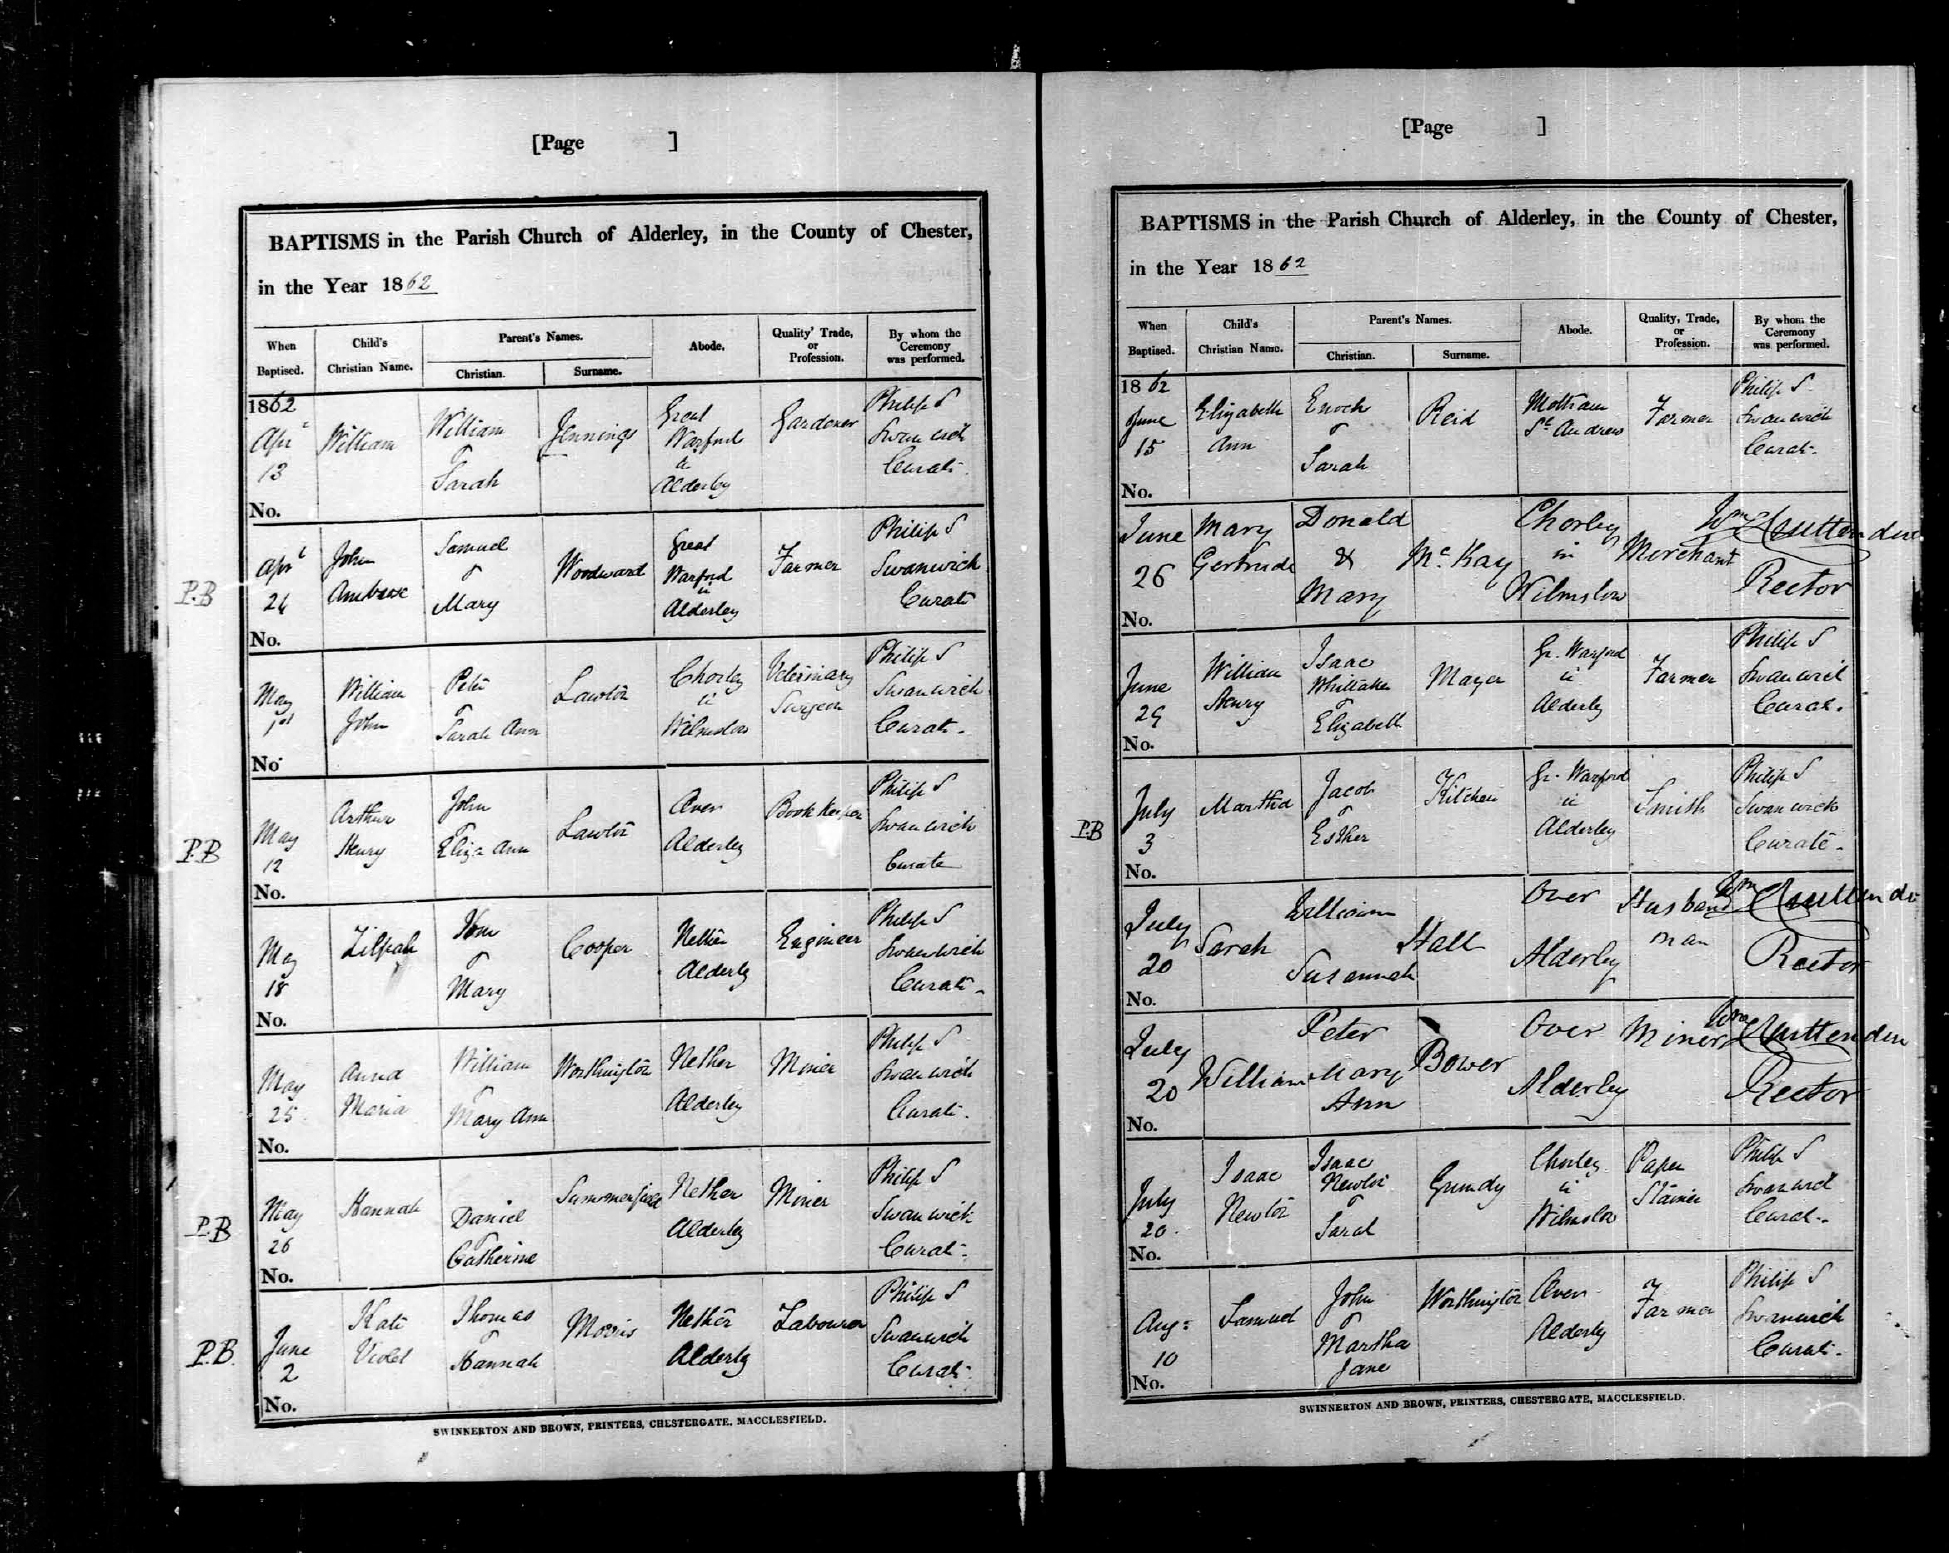 [Page ]
BAPTISMS in the Parish Church of Alderley, in the County of Chester,
in the Year 1862
When Baptised. Child's Christian Name. Parent's Names. Christian. Surname. Abode. Quality, Trade, or Profession. By whom the Ceremony was performed.
1862 Apr 13 William William & Sarah Jennings Great Warford in Alderley Gardener Philip S Swanwich Curate
No.
P.B Apr 24 John Ambrose Samuel & Mary Woodward Great Warford in Alderley Farmer Philip S Swanwich Curate
No.
May 1st William John Peter & Sarah Ann Lawton Chorley in Wilmslow Veterinary Surgeon Philip S Swanwich Curate
No.
P.B May 12 Arthur Henry John & Eliza Ann Lawton Over Alderley Book Keeper Philip S Swanwich Curate
No.
May 18 Zilpah & Mary Cooper Nether Alderley Engineer Philip S Swanwich Curate
No.
May 25 Anna Maria William & Mary Ann Worthington Nether Alderley Miner Philip S Swanwich Curate
No.
P.B May 26 Hannah Daniel & Catherine Summerfield Nether Alderley Miner Philip S Swanwich Curate
No.
P.B. June 2 Kate Violet Thomas & Hannah Morris Nether Alderley Labourer Philip S Swanwich Curate
No.
SWINNERTON AND BROWN, PRINTERS, CHESTERGATE, MACCLESFIELD.
[Page ]
BAPTISMS in the Parish Church of Alderley, in the County of Chester,
in the Year 1862
When Baptised. Child's Christian Name. Parent's Names. Christian. Surname. Abode. Quality, Trade, or Profession. By whom the Ceremony was performed.
1862 June 15 Elizabeth Ann Enoch & Sarah Reid Mottram St Andrew Farmer Philip S Swanwich Curate
No.
June 26 Mary Gertrude Donald & Mary Mc Kay Chorley in Wilmslow Merchant Rector
No.
June 29 William Henry Isaac Whittaker & Elizabeth Mayer Gr. Warford in Alderley Farmer Philip S Swanwich Curate
No.
P.B July 3 Martha Jacob & Esther Kitchen Gr. Warford in Alderley Smith Philip S Swanwich Curate
No.
July 20 Sarah William Susannah Hall Over Alderley Husbandman Rector
No.
July 20 William Peter Mary Ann Bower Over Alderley Miner Rector
No.
July 20. Isaac Newton Isaac Newton & Sarah Grundy Chorley in Wilmslow Paper Stainer Philip S Swanwich Curate
No.
Aug: 10 Samuel John & Martha Jane Worthington Over Alderley Farmer Philip S Swanwich Curate
No.
SWINNERTON AND BROWN, PRINTERS, CHESTERGATE, MACCLESFIELD.